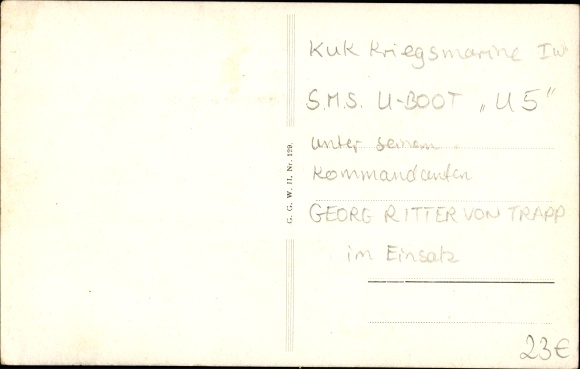 KuK Kriegsmarine IW
S.M.S. U-BOOT „U5"
unter seinem
Kommandanten
GEORG RITTER VON TRAPP
im Einsatz
G. G. W. II, Nr. 129.
23€